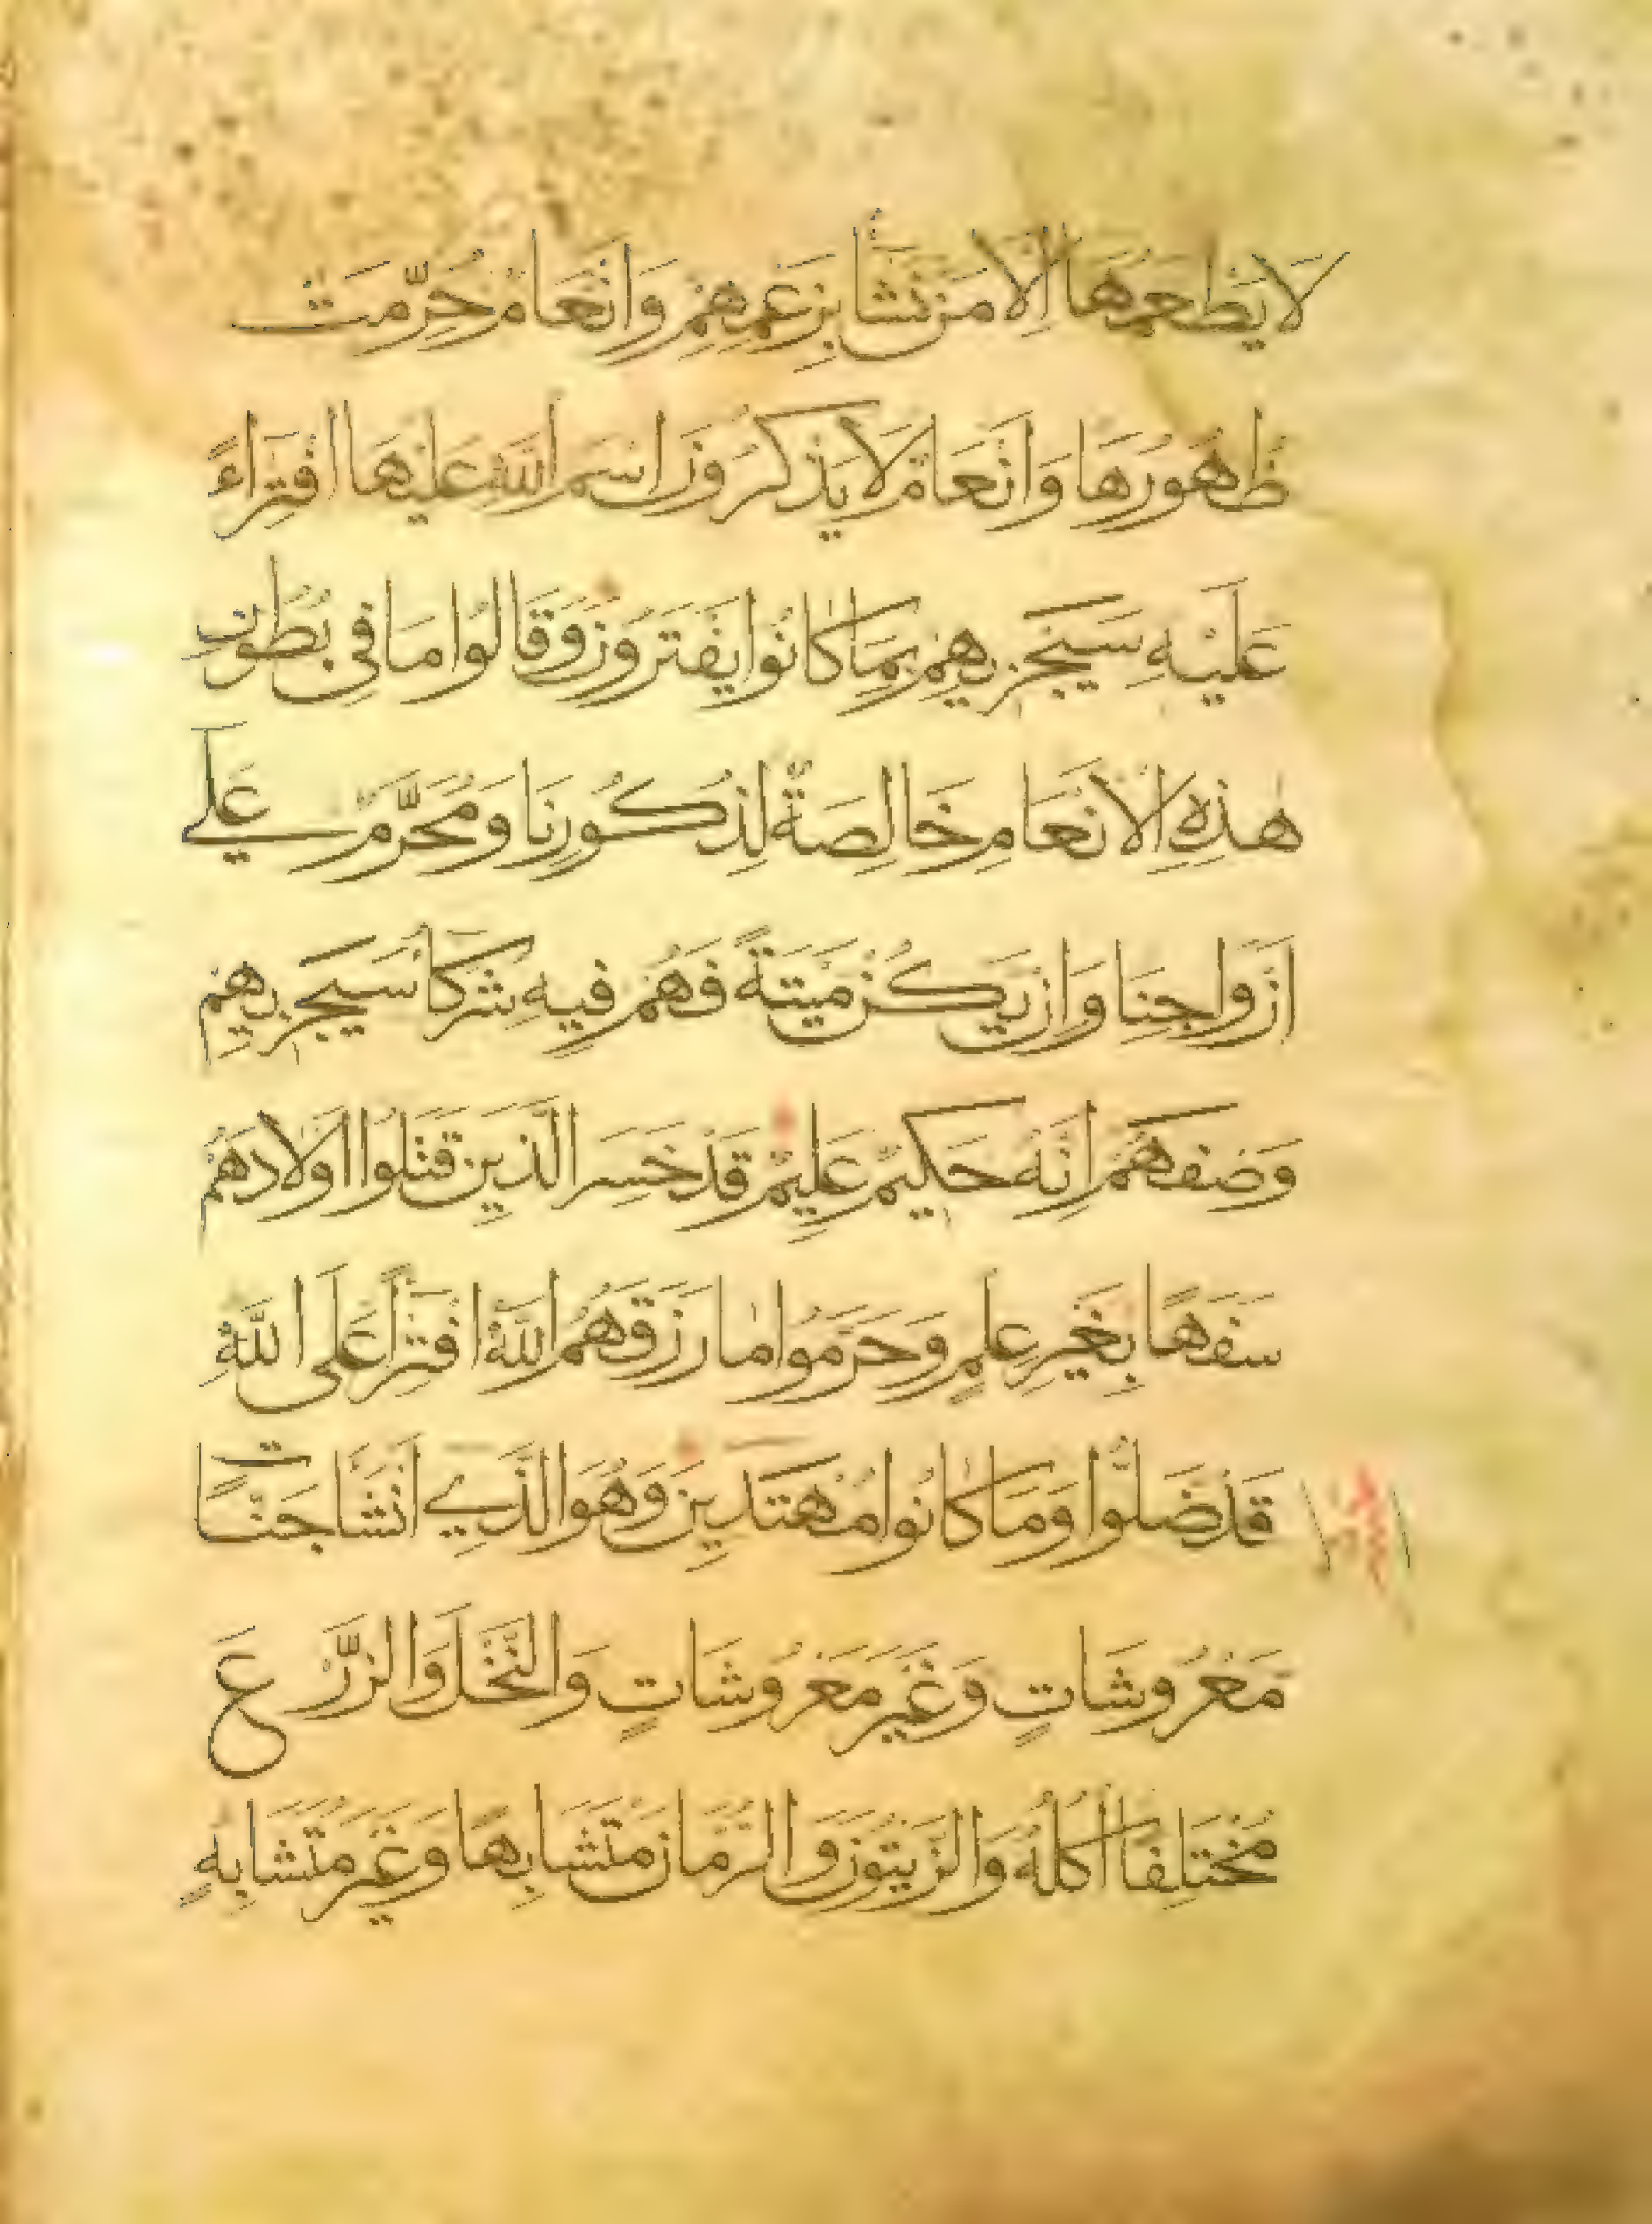 لَا يَطْعَمُهَا إِلَّا مَنْ نَشَأُ بِزَعْمِهِمْ وَأَنْعَامٌ حُرِّمَتْ
ظُهُورُهَا وَأَنْعَامٌ لَا يَذْكُرُونَ اسْمَ اللَّهِ عَلَيْهَا افْتِرَاءً
عَلَيْهِ سَيَجْزِيهِمْ بِمَا كَانُوا يَفْتَرُونَ وَقَالُوا مَا فِي بُطُونِ
هٰذِهِ الْأَنْعَامِ خَالِصَةٌ لِذُكُورِنَا وَمُحَرَّمٌ عَلَى
أَزْوَاجِنَا وَإِنْ يَكُنْ مَيْتَةً فَهُمْ فِيهِ شُرَكَأُ سَيَجْزِيهِمْ
وَصْفَهُمْ إِنَّهُ حَكِيمٌ عَلِيمٌ قَدْ خَسِرَ الَّذِينَ قَتَلُوا أَوْلَادَهُمْ
سَفَهًا بِغَيْرِ عِلْمٍ وَحَرَّمُوا مَا رَزَقَهُمُ اللَّهُ افْتِرَاً عَلَى اللَّهِ
قَدْ ضَلُّوا وَمَا كَانُوا مُهْتَدِينَ وَهُوَ الَّذِي أَنْشَأَ جَنَّاتٍ
مَعْرُوشَاتٍ وَغَيْرَ مَعْرُوشَاتٍ وَالنَّخْلَ وَالزَّرْعَ
مُخْتَلِفًا أُكُلُهُ وَالزَّيْتُونَ وَالرُّمَّانَ مُتَشَابِهًا وَغَيْرَ مُتَشَابِهٍ